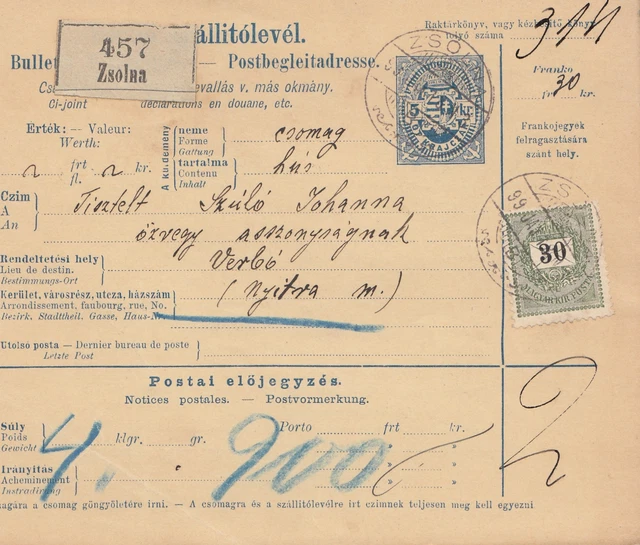 Raktárkönyv, vagy kézbesítő könyv
folyó száma
457
Zsolna
Szállítólevél.
— Postbegleitadresse.
vallás v. más okmány.
Ci-joint déclarations en douane, etc.
ZSO
5 kr
Franko
30
fr. kr.
Frankojegyek
felragasztására
szánt hely.
Érték: — Valeur:
Werth:
2 frt 2 kr.
fl.
A küldemény
neme
Forme
Gattung
csomag
tartalma
Contenu
Inhalt
hús
Czim
A
An
Tisztelt Szúló Johanna
özvegy asszonyságnak
Rendeltetési hely
Lieu de destin.
Bestimmungs-Ort
Verbó
Kerület, városrész, utcza, házszám
Arrondissement, faubourg, rue, No.
Bezirk. Stadttheil. Gasse, Haus-N
(Nyitra m.)
ZS
30
MAGYAR KIR. POSTA
Utolsó posta — Dernier bureau de poste
Letzte Post
Postai előjegyzés.
Notices postales. — Postvormerkung.
Súly
Poids
Gewicht
4 klgr. 900 gr.
Porto frt kr.
2
Irányitás
Acheminement
Instradirung
magára a csomag göngyöletére irni. — A csomagra és a szállitólevélre irt czimnek teljesen meg kell egyezni